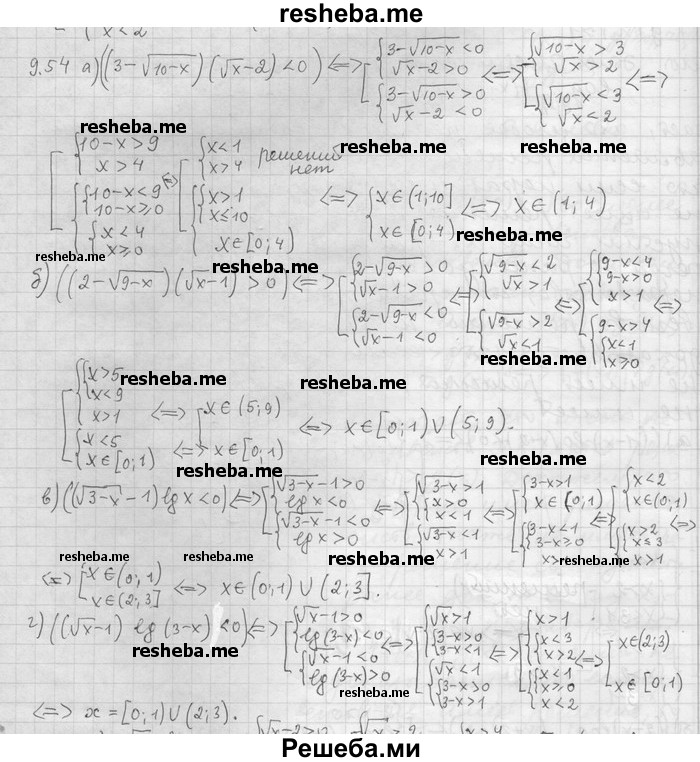 resheba.me
{x<2
9.54 а) ((3-√(10-x))(√x-2)<0) <=> [{3-√(10-x)<0 √x-2>0 {3-√(10-x)>0 √x-2<0 <=> [{√(10-x)>3 √x>2 {√(10-x)<3 √x<2 <=>
resheba.me resheba.me resheba.me
[{10-x>9 x>4 {{10-x<9 10-x≥0 {x<4 x≥0 <=> [{x<1 x>4 решений нет {{x>1 x≤10 x∈[0;4) <=> {x∈(1;10] x∈[0;4) <=> x∈(1;4)
resheba.me resheba.me resheba.me
б) ((2-√(9-x))(√x-1)>0) <=> [{2-√(9-x)>0 √x-1>0 {2-√(9-x)<0 √x-1<0 <=> [{√(9-x)<2 √x>1 {√(9-x)>2 √x<1 <=> [{{9-x<4 9-x>0 x>1 {9-x>4 {x<1 x≥0 <=>
resheba.me
resheba.me resheba.me
[{{x>5 x<9 x>1 {x<5 x∈[0;1) <=> [x∈(5;9) <=> x∈[0;1) <=> x∈[0;1)∪(5;9).
resheba.me
в) ((√(3-x)-1)lg x<0) <=> [{√(3-x)-1>0 lg x<0 {√(3-x)-1<0 lg x>0 <=> [{√(3-x)>1 {x>0 x<1 {√(3-x)<1 x>1 <=> [{3-x>1 x∈(0;1) {{3-x<1 3-x≥0 x> <=> [{x<2 x∈(0;1) {{x>2 x≤3 x>1
resheba.me resheba.me resheba.me
<=> [x∈(0;1) x∈(2;3] <=> x∈(0;1)∪(2;3].
г) ((√x-1) lg(3-x)<0) <=> [{√x-1>0 lg(3-x)<0 {√x-1<0 lg(3-x)>0 <=> [{√x>1 {3-x>0 3-x<1 {√x<1 {3-x>0 3-x>1 <=> [{x>1 {x<3 x>2 {{x<1 x≥0 x<2 <=> [x∈(2;3) x∈[0;1)
resheba.me resheba.me resheba.me
<=> x=[0;1)∪(2;3).
Решеба.ми